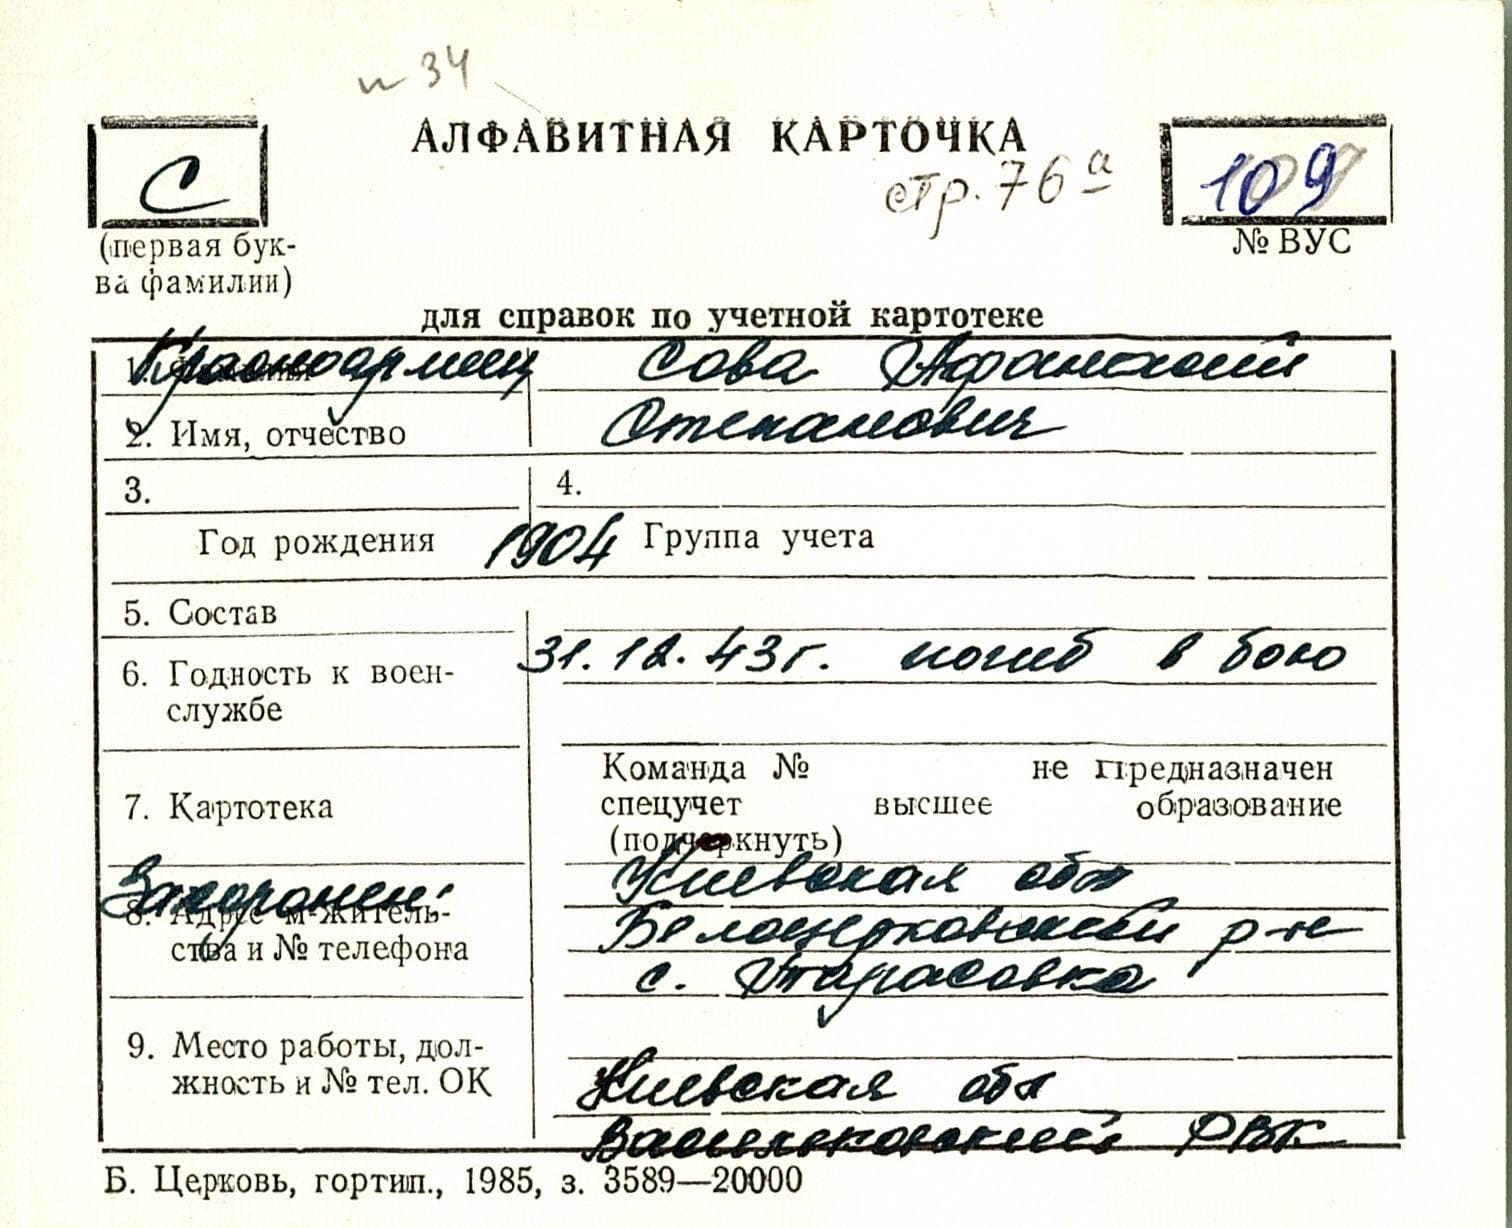 п 34
АЛФАВИТНАЯ КАРТОЧКА
стр. 76а
С
109
(первая бук-
ва фамилии)
№ ВУС
для справок по учетной картотеке
1. Фамилия
Красноармеец Сова Афанасий
2. Имя, отчество Степанович
3. 4.
Год рождения 1904 Группа учета
5. Состав
31.12.43г. погиб в бою
6. Годность к воен-
службе
Команда № не предназначен
7. Картотека спецучет высшее образование
(подчеркнуть)
Захоронен: Киевская обл
8. Адрес м-житель- Белоцерковский р-н
ства и № телефона с. Тарасовка
9. Место работы, дол-
жность и № тел. ОК Киевская обл
Васильковский РВК
Б. Церковь, гортип., 1985, з. 3589—20000